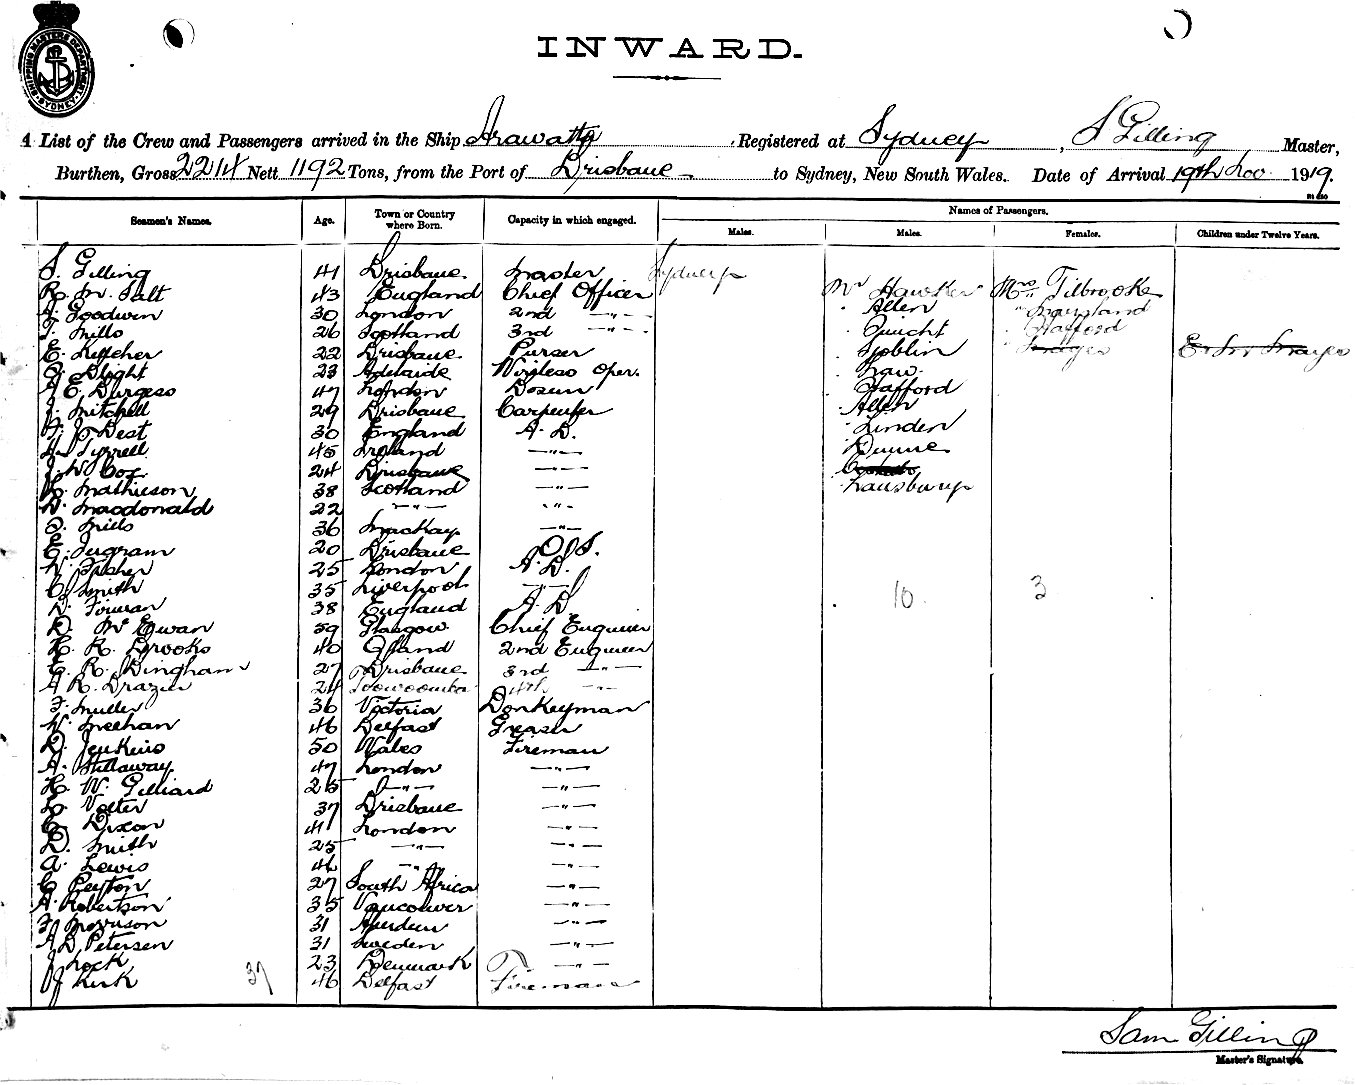 SHIPPING MASTERS DEPARTMENT SYDNEY
INWARD.
A List of the Crew and Passengers arrived in the Ship Arawatta, Registered at Sydney, S Gilling Master,
Burthen, Gross 2214 Nett 1192 Tons, from the Port of Brisbane to Sydney, New South Wales. Date of Arrival 19th Nov 1919.
Seamen's Names. Age. Town or Country where Born. Capacity in which engaged. Names of Passengers.
Males. Males. Females. Children under Twelve Years.
S. Gilling 41 Brisbane Master Sydney
R. M. Salt 43 England Chief Officer Mr Hawker Mrs Tilbrooke
Goodwin 30 London 2nd -"- Allen " Marsland
T. Mills 26 Scotland 3rd -"- Quicht " Stafford
E. 22 Brisbane Purser Joblin
Slight 23 Adelaide Wireless Oper. Law
E. Burgess 47 London Bosun Stafford
J. Mitchell 29 Brisbane Carpenter Allen
J Best 30 England A. B. Linden
Tyrrell 45 Ireland -"- Dunne
J. W. Cox 24 Brisbane -"-
Mathieson 38 Scotland -"- Lansbury
Macdonald 22 -"- -"-
S. Mills 36 Mackay -"-
E. Ingram 20 Brisbane O. S.
W. Fisher 25 London A. B.
C. Smith 35 Liverpool -"- 10 3
38 England A. B.
D. McEwan 59 Glasgow Chief Engineer
H. R. Brooks 40 2nd Engineer
E. R. Bingham 27 Brisbane 3rd -"-
A R. Brazier 24 Toowoomba 4th -"-
F. Muller 36 Victoria Donkeyman
W. Meehan 46 Belfast Greaser
D. Jenkins 50 Wales Fireman
A. Stillaway 47 London -"-
H. W. Gilliard 25 -"- -"-
Volter 37 Brisbane -"-
C. Dixon 41 London -"-
D. Smith 25 -"- -"-
A. Lewis 46 -"- -"-
C. Peyton 27 South Africa -"-
A. Robertson 35 Vancouver -"-
F. Morrison 31 Aberdeen -"-
A D. Petersen 31 Sweden -"-
J Lock 23 Denmark -"-
J Kirk 37 46 Belfast Fireman
Sam Gilling
Master's Signature.